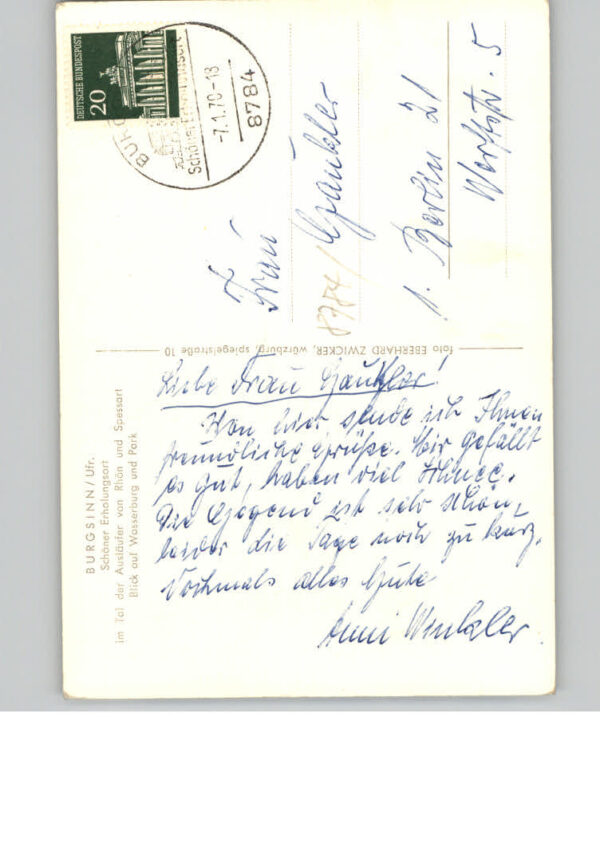 DEUTSCHE BUNDESPOST
20
-7.1.70-18
8784
Frau
Gaukler
8784
1 Berlin 21
Werftstr. 5
foto EBERHARD ZWICKER, würzburg, spiegelstraße 10
BURGSINN/Ufr.
Schöner Erholungsort
im Tal der Ausläufer von Rhön und Spessart
Blick auf Wasserburg und Park
Liebe Frau Gaukler!
Von hier sende ich Ihnen
freundliche Grüße. Mir gefällt
es gut, haben viel Schnee.
Die Gegend ist sehr schön,
leider die Tage noch zu kurz.
Nochmals alles Gute
Anni Winkler